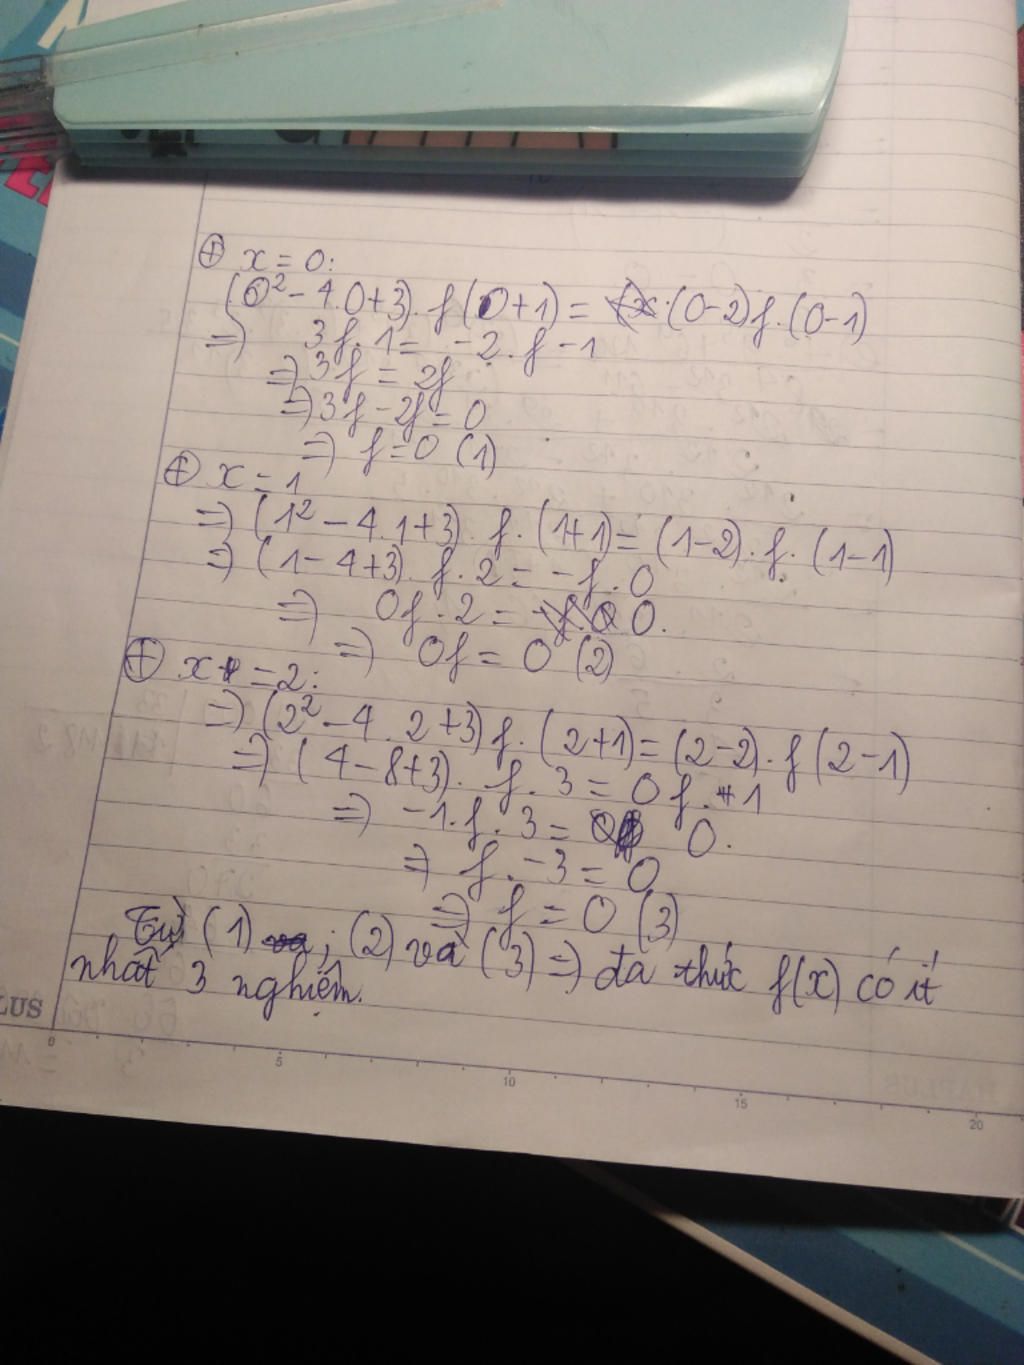 ⊕ x = 0:
(0² - 4.0+3). f(0+1) = (0-2)f.(0-1)
=> 3f.1 = -2.f-1
=> 3f = 2f
=> 3f - 2f = 0
=> f=0 (1)
⊕ x = 1
=> (1² - 4.1+3). f.(1+1) = (1-2).f.(1-1)
=> (1-4+3). f.2 = -f.0
=> 0f.2 = 0.
=> 0f = 0 (2)
⊕ x = 2:
=> (2² - 4.2+3) f.(2+1) = (2-2).f(2-1)
=> (4-8+3). f.3 = 0f.+1
=> -1.f.3 = 0.
=> f.-3 = 0
=> f = 0 (3)
Từ (1) ; (2) và (3) => đa thức f(x) có ít
nhất 3 nghiệm.
LUS
0 5 10 15 20